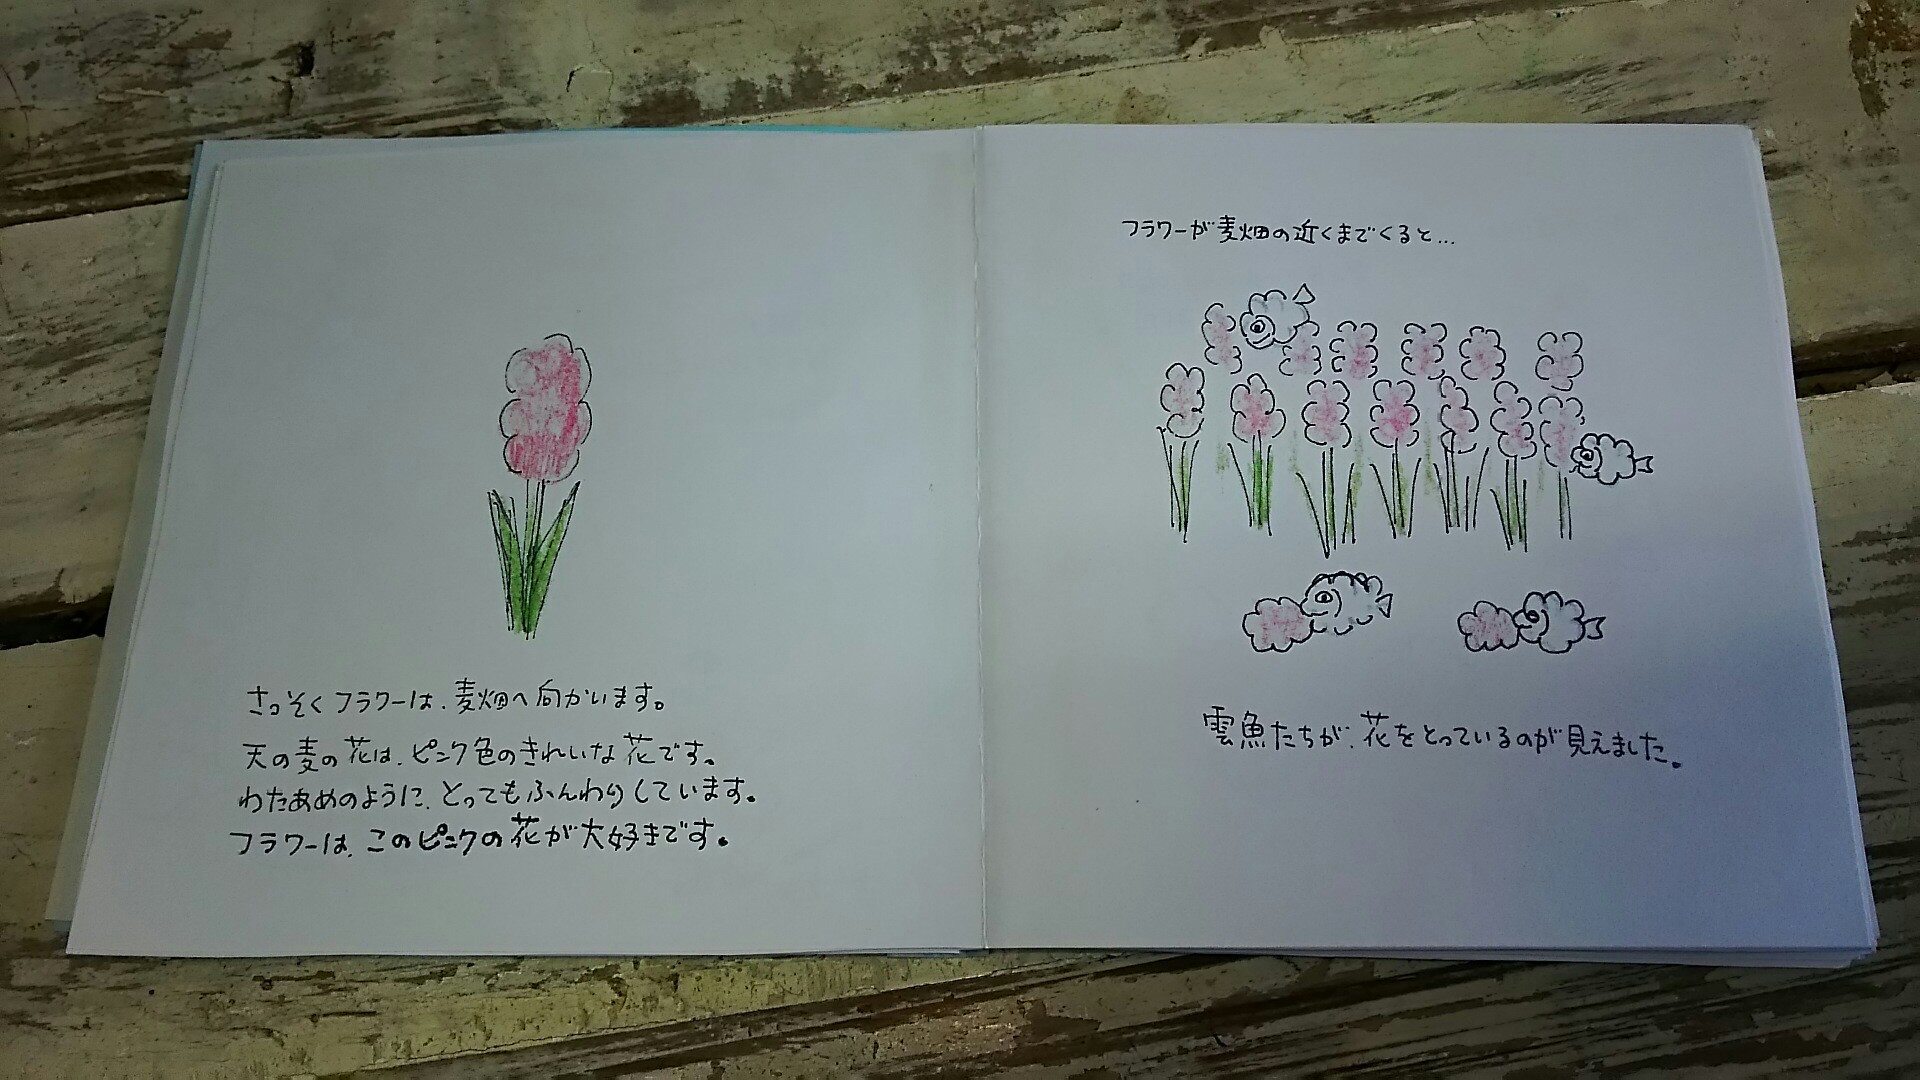 さっそくフラワーは、麦畑へ向かいます。
天の麦の花は、ピンク色のきれいな花です。
わたあめのように、とってもふんわりしています。
フラワーは、このピンクの花が大好きです。
フラワーが麦畑の近くまでくると...
雲魚たちが、花をとっているのが見えました。